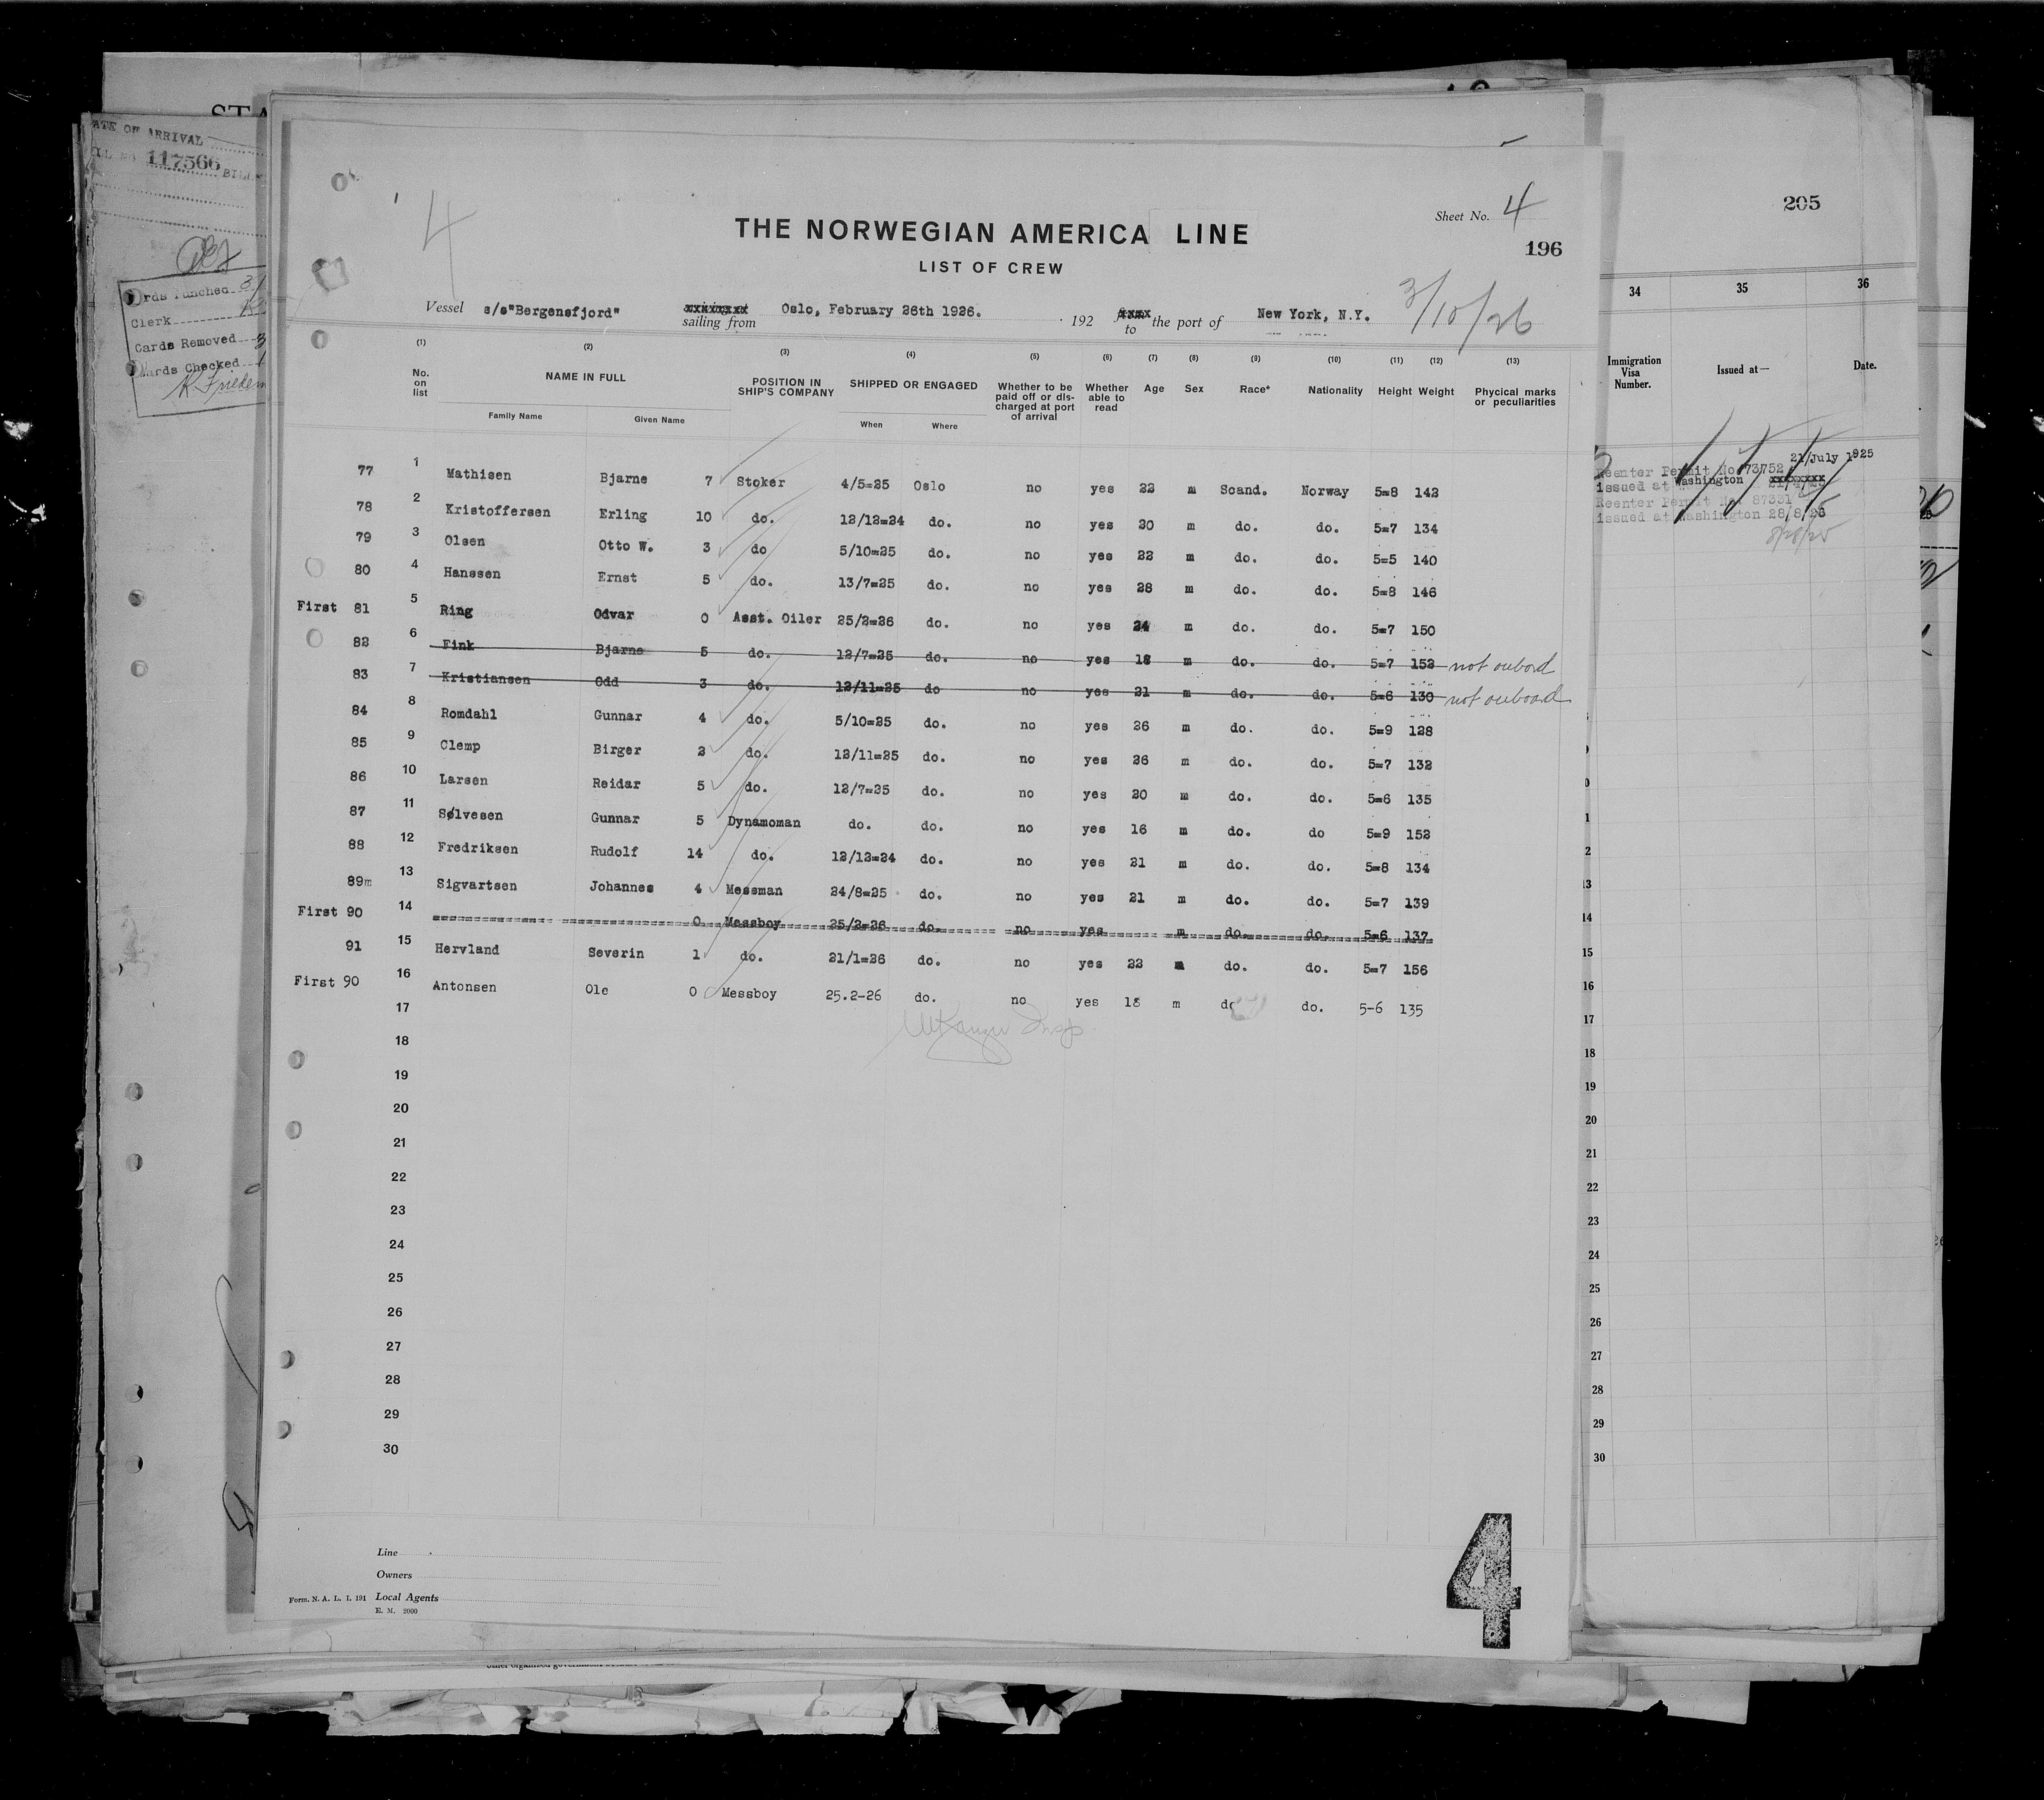 STA
ATE OF ARRIVAL
117566 BILL
Cards Punched 3/
Clerk
Cards Removed 3
Cards Checked
K. Friedem
4
THE NORWEGIAN AMERICA LINE
Sheet No. 4
196
LIST OF CREW
Vessel s/s"Bergensfjord" arriving at sailing from Oslo, February 26th 1926. 192 from to the port of New York, N.Y. 3/10/26
(1) (2) (3) (4) (5) (6) (7) (8) (9) (10) (11) (12) (13)
No. on list NAME IN FULL POSITION IN SHIP'S COMPANY SHIPPED OR ENGAGED Whether to be paid off or discharged at port of arrival Whether able to read Age Sex Race* Nationality Height Weight Phycical marks or peculiarities
Family Name Given Name When Where
77 1 Mathisen Bjarne 7 Stoker 4/5=25 Oslo no yes 22 m Scand. Norway 5=8 142
78 2 Kristoffersen Erling 10 do. 12/12=24 do. no yes 20 m do. do. 5=7 134
79 3 Olsen Otto W. 3 do 5/10=25 do. no yes 22 m do. do. 5=5 140
80 4 Hanssen Ernst 5 do. 13/7=25 do. no yes 28 m do. do. 5=8 146
First 81 5 Ring Odvar 0 Asst. Oiler 25/2=26 do. no yes 24 m do. do. 5=7 150
82 6 Fink Bjarne 5 do. 12/7=25 do. no yes 18 m do. do. 5=7 152 not onbord
83 7 Kristiansen Odd 3 do. 12/11=25 do no yes 21 m do. do. 5=6 130 not onboard
84 8 Romdahl Gunnar 4 do. 5/10=25 do. no yes 26 m do. do. 5=9 128
85 9 Clemp Birger 2 do. 12/11=25 do. no yes 26 m do. do. 5=7 132
86 10 Larsen Reidar 5 do. 12/7=25 do. no yes 20 m do. do. 5=6 135
87 11 Sølvesen Gunnar 5 Dynamoman do. do. no yes 16 m do. do 5=9 152
88 12 Fredriksen Rudolf 14 do. 12/12=24 do. no yes 21 m do. do. 5=8 134
89m 13 Sigvartsen Johannes 4 Messman 24/8=25 do. no yes 21 m do. do. 5=7 139
First 90 14 0 Messboy 25/2=26 do. no yes m do. do. 5=6 137
91 15 Hervland Severin 1 do. 21/1=26 do. no yes 22 m do. do. 5=7 156
First 90 16 Antonsen Ole 0 Messboy 25.2-26 do. no yes 18 m do do. 5-6 135
17
18
19
20
21
22
23
24
25
26
27
28
29
30
Line
Owners
Form. N. A. L. I. 191 Local Agents
E. M. 2000
4
205
34 35 36
Immigration Visa Number. Issued at— Date.
Reenter Permit No 73752 21/July 1925
issued at Washington
Reenter Permit No. 87331
issued at Washington 28/8/25
8/28/25
13
14
15
16
17
18
19
20
21
22
23
24
25
26
27
28
29
30